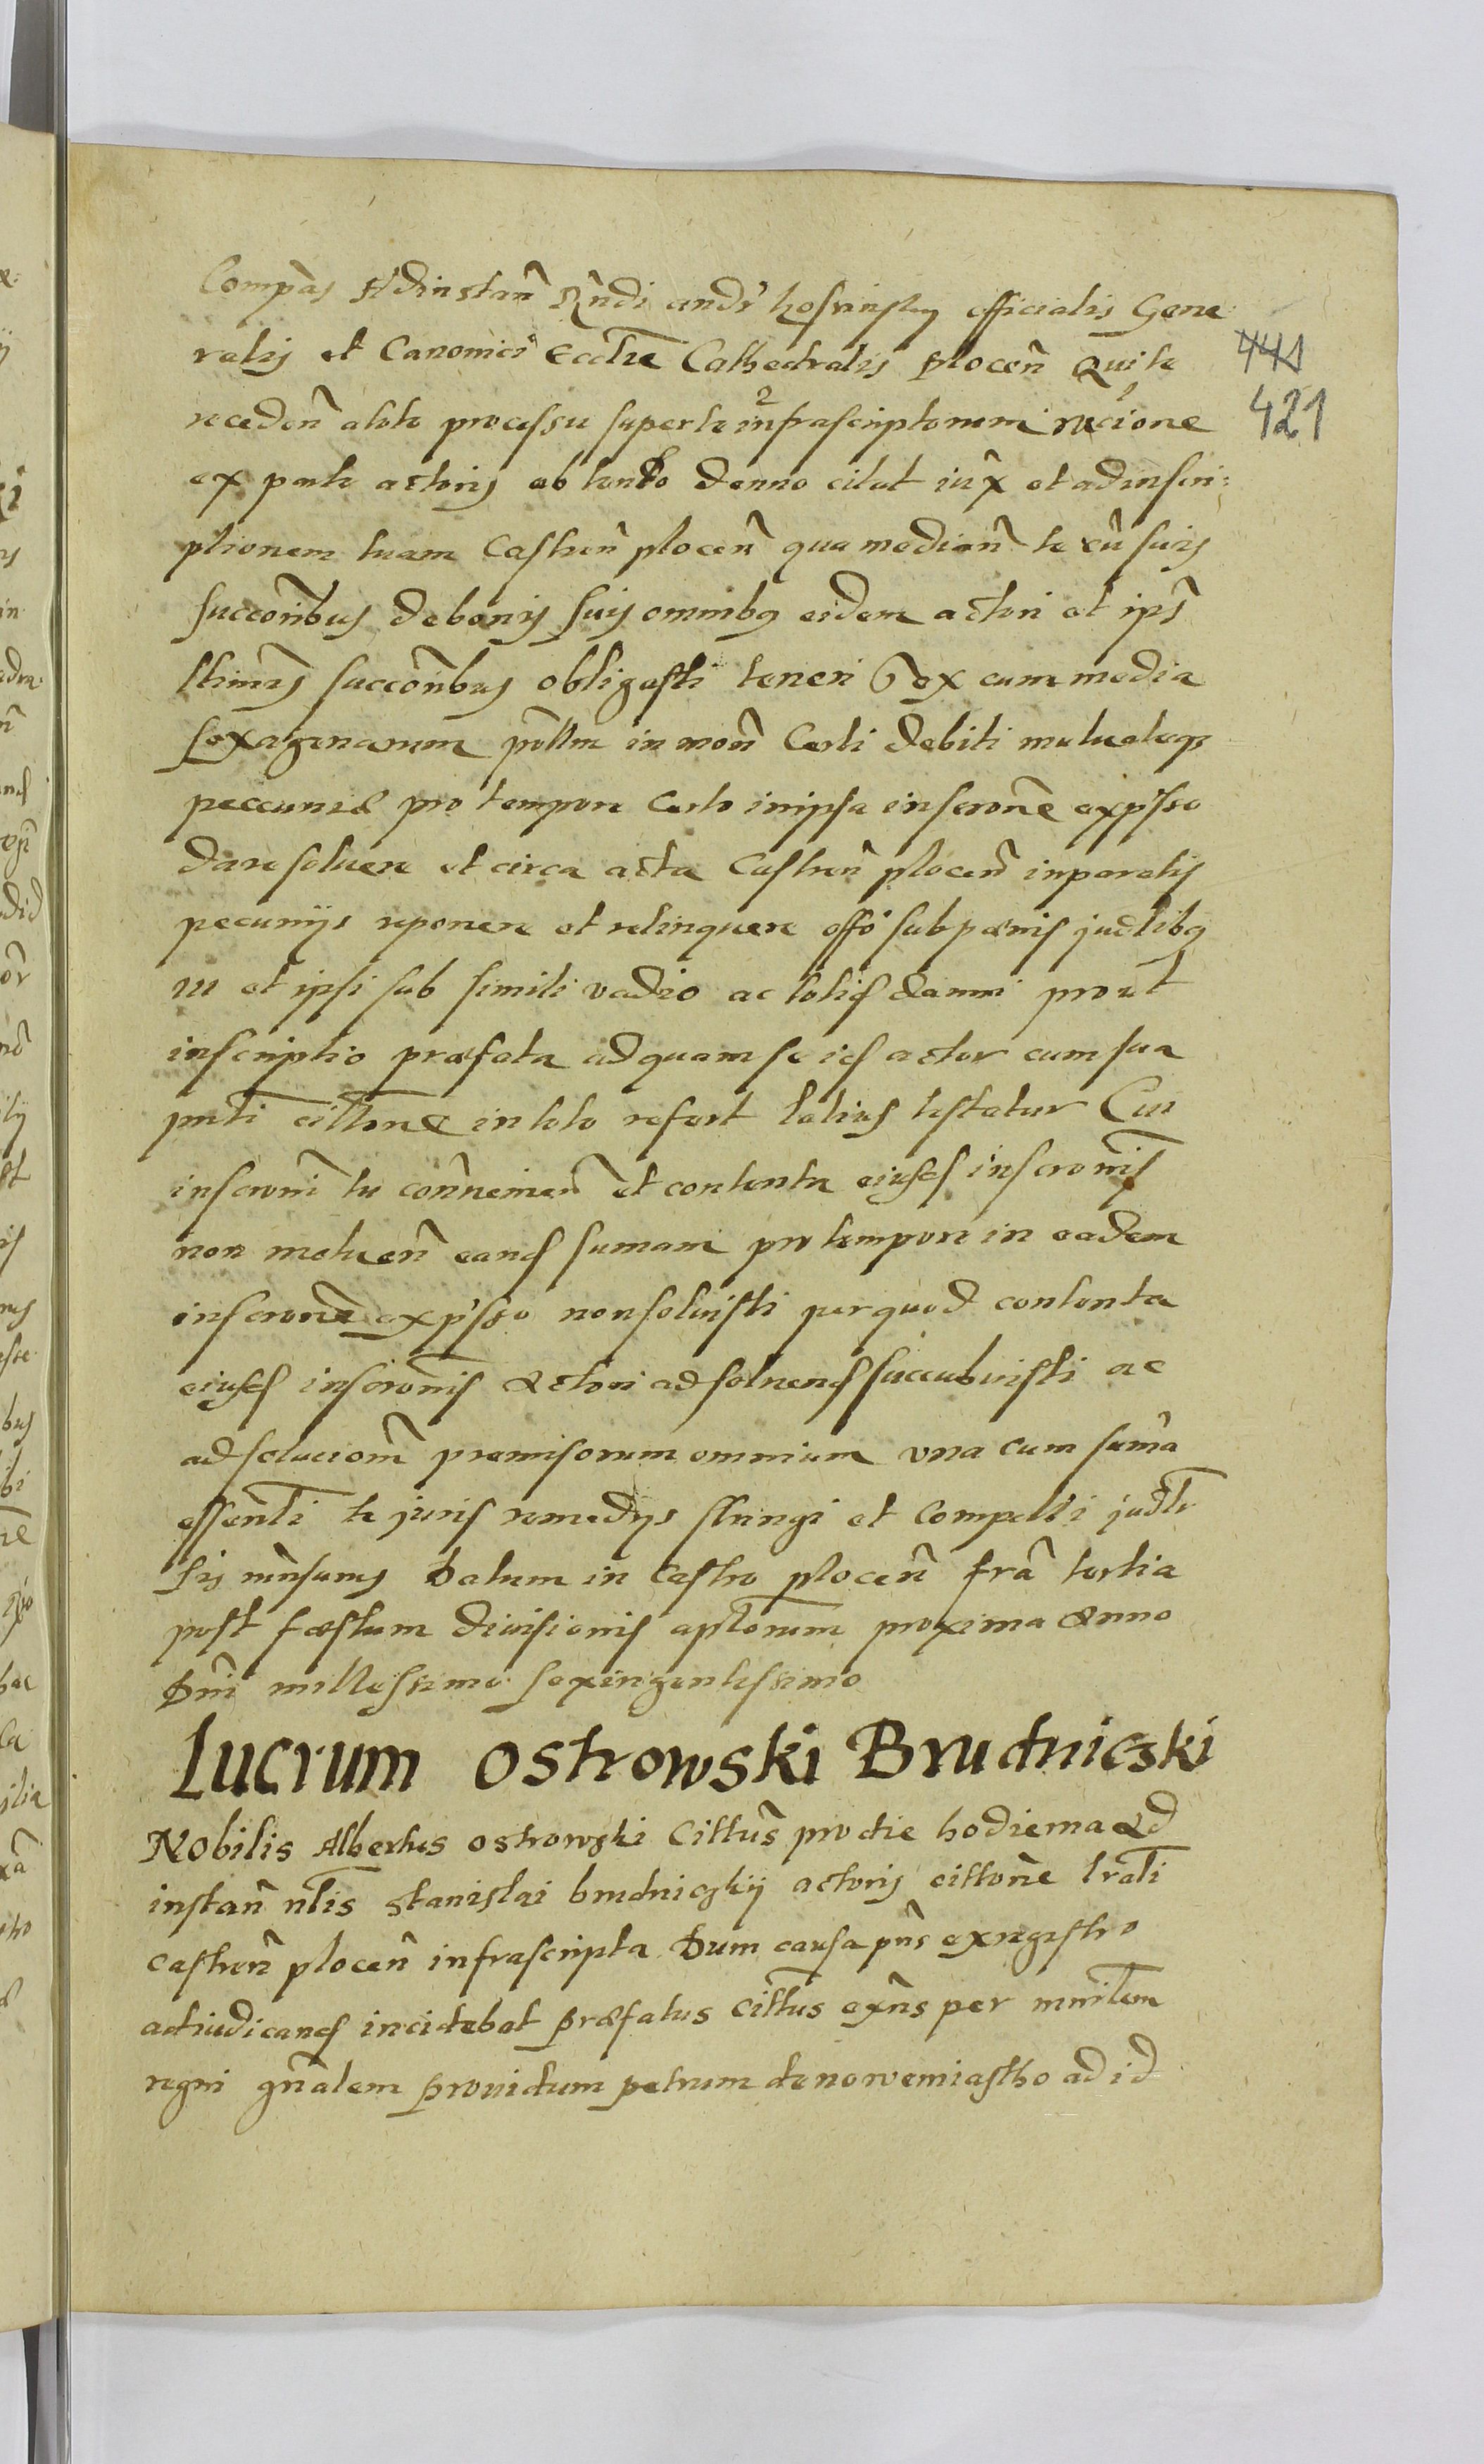 Compa͂s Adinstan͂ Rn͂di andr͂ officialis Gene
ralis et Canonici Eccl͂ie Cathedralis plocen͂ Qui te
441
421
recedon͂ aloto processu super te infrascriptorum racione
ex parte actoris obtento denno citat iux͂ et ad inscri:
ptionem tuam Castren͂ plocen͂ qua median͂ te cu͂ suis
succorib͂us de bonis suis omnibq eidem actori et ips͂
succorib͂us obligasti teneri Sex cum media
sexagenarum in mon͂ Certi debiti mutuateqz
peccuniæ pro tempore Certo in ipsa inscrone͂ exp͂sso
dare soluere et circa acta Castren͂ plocen͂ in paratis
pecuniis reponere et relinquere subpænis judlibq
iii et ipsi sub simili vadio ac damni prout
inscriptio præfata ad quam se actor cum sua
pnti citt͂one in toto refert latius testatur Cui
inscroni͂ tu et contenta eiusd inscronis͂
non metuen͂ eand sumam pro tempore in eadem
inscrone͂ exp͂sso non soluisti per quod contenta
eiusd inscronis͂ actori ad soluend succubuisti ac
ad solucion͂ premisorum omnium vna cum sum͂a
te juris remedys stringi et Compelli judte
Datum in Castro plocen͂ fra͂ tertia
post fæstum diuisionis aplorum͂ proxima Anno
Dni͂ millessimo sexcingentessimo
Lucrum Ostrowski Brudniczki
Nobilis Albertus ostrowski Cittus͂ pro die hodierna ad
instan͂ nl͂is Stanislai brudniczkij actoris cittone͂
castren͂ plocen͂ infrascripta Dum causa pn͂s ex regestro
adiudicand incidebat præfatus cittus͂ exn͂s per mnilem͂
regni gn͂alem prouidum petrum de nowemiastho ad id